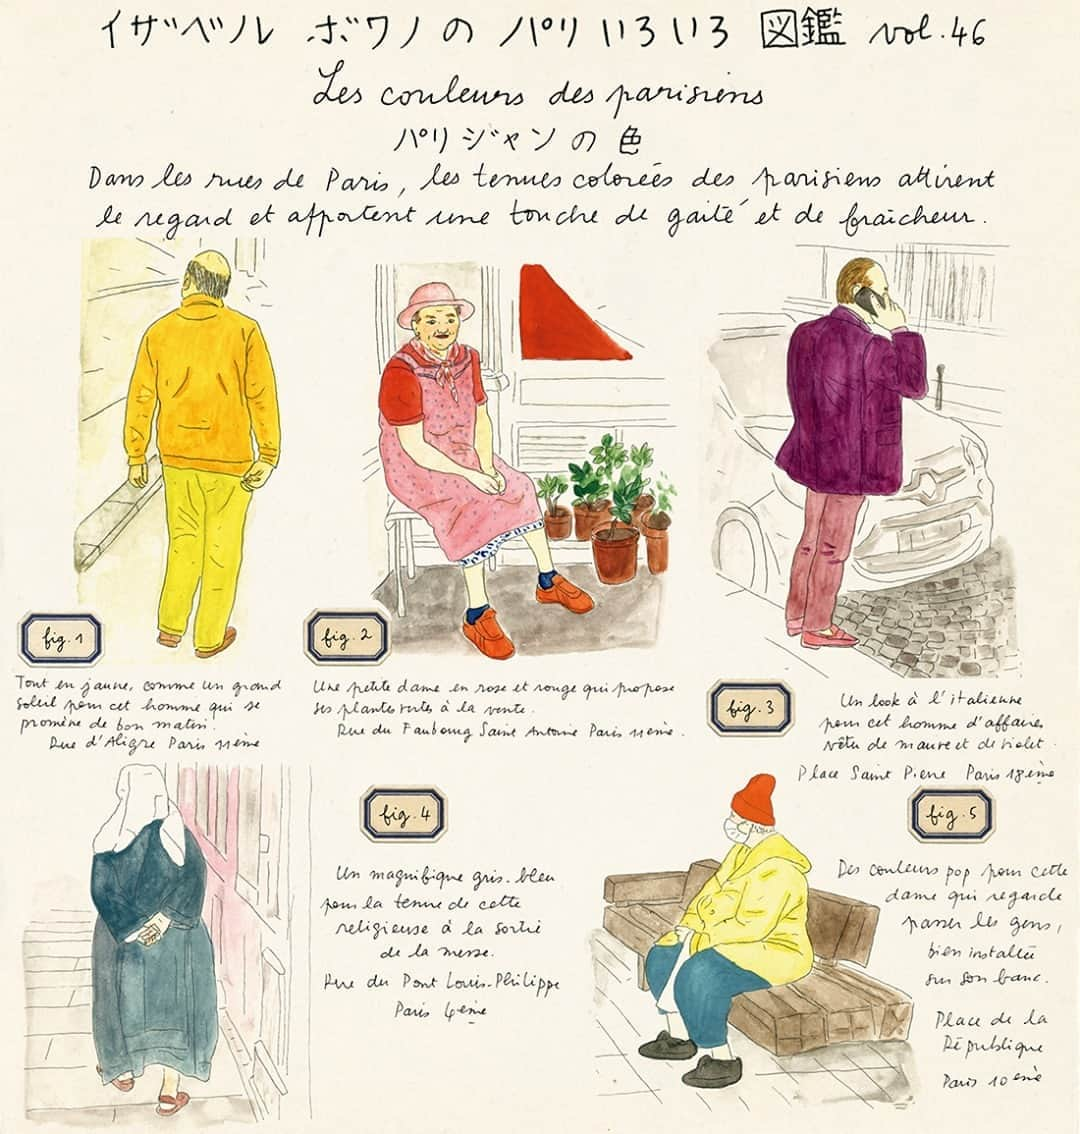 イザベル ボワノの パリいろいろ 図鑑 vol.46
Les couleurs des parisiens
パリジャンの色
Dans les rues de Paris, les tenues colorées des parisiens attirent
le regard et apportent une touche de gaité et de fraîcheur.
fig.1
Tout en jaune, comme un grand
soleil pour cet homme qui se
promène de bon matin.
Rue d'Aligre Paris 11ème
fig.2
Une petite dame en rose et rouge qui propose
ses plantes vertes à la vente.
Rue du Faubourg Saint Antoine Paris 11ème.
fig.3
Un look à l'italienne
pour cet homme d'affaires
vêtu de mauve et de violet.
Place Saint Pierre Paris 18ème
fig.4
Un magnifique gris-bleu
pour la tenue de cette
religieuse à la sortie
de la messe.
Rue du Pont Louis-Philippe
Paris 4ème
fig.5
Des couleurs pop pour cette
dame qui regarde
passer les gens,
bien installée
sur son banc.
Place de la
République
Paris 10ème